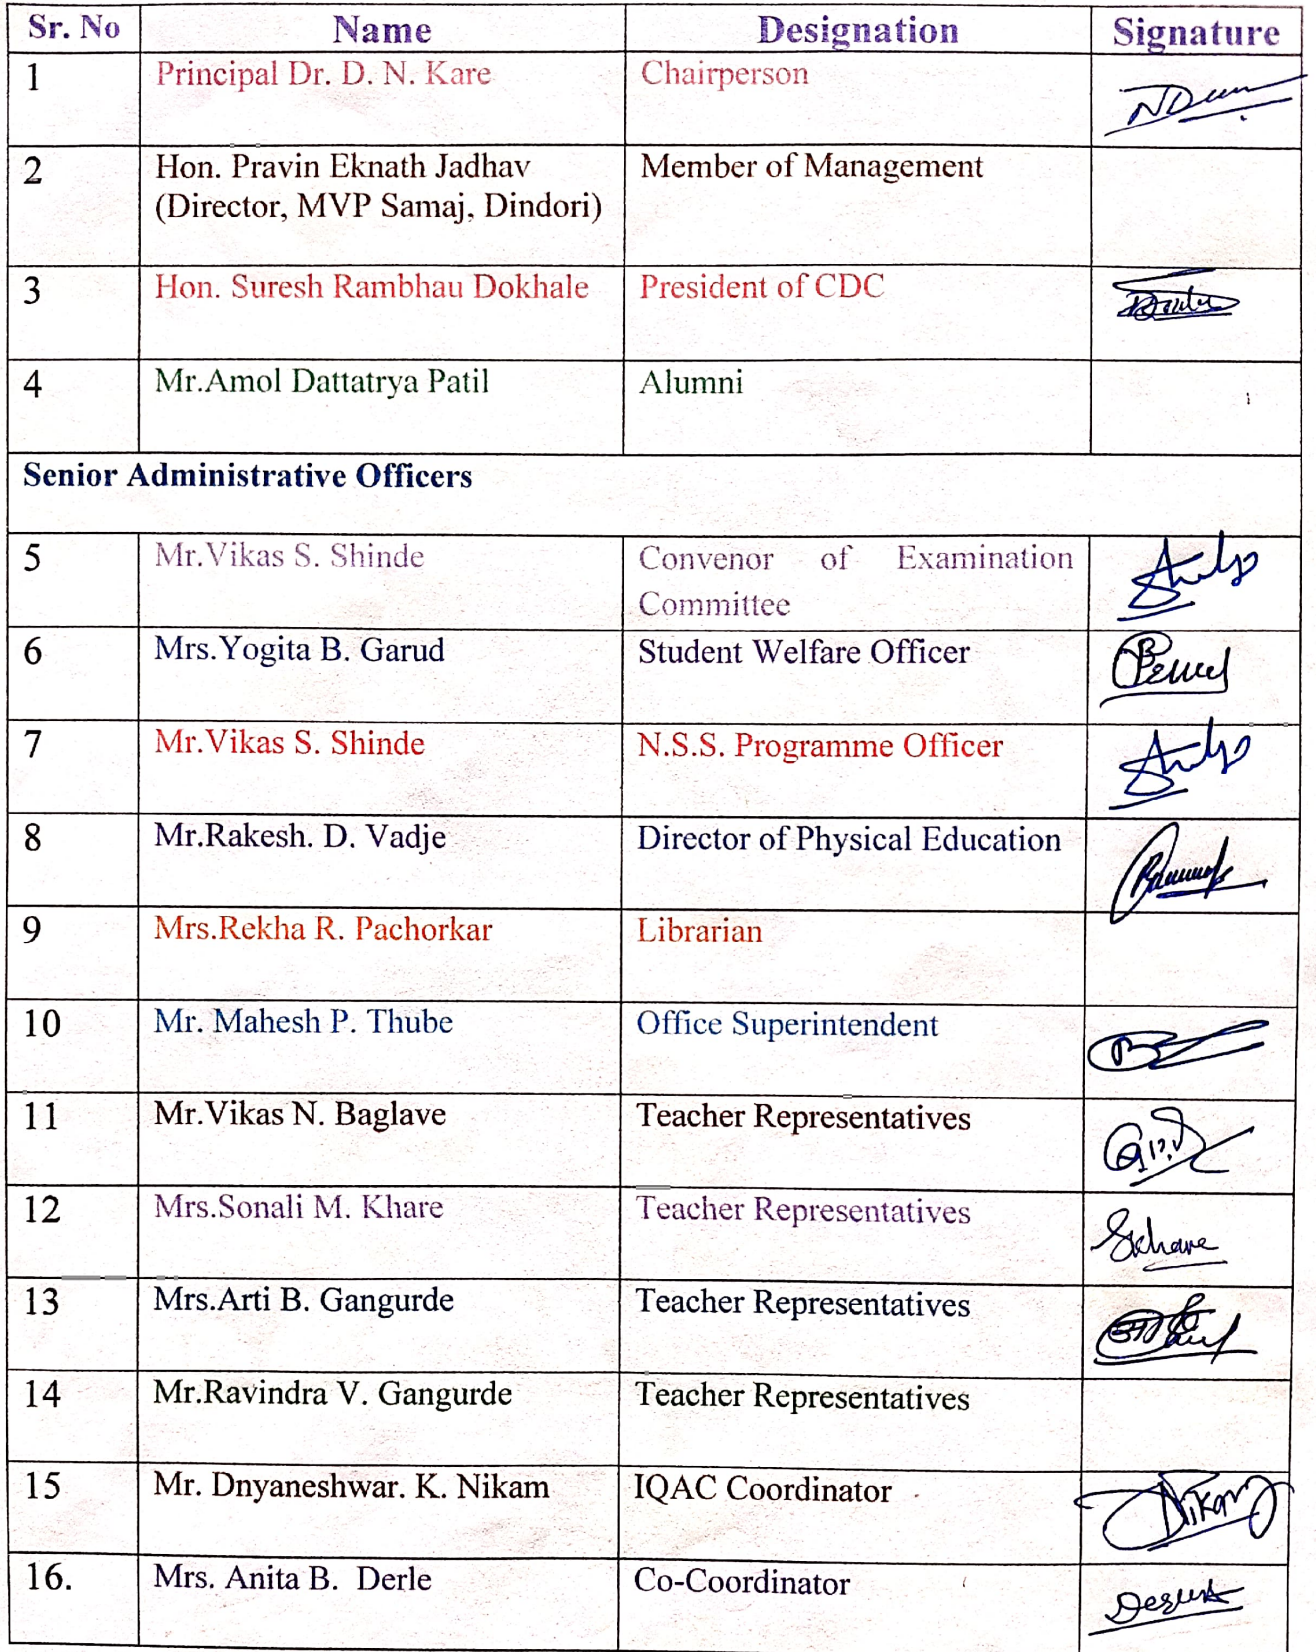 Sr. No Name Designation Signature
1 Principal Dr. D. N. Kare Chairperson
2 Hon. Pravin Eknath Jadhav Member of Management
(Director, MVP Samaj, Dindori)
3 Hon. Suresh Rambhau Dokhale President of CDC
4 Mr.Amol Dattatrya Patil Alumni
Senior Administrative Officers
5 Mr.Vikas S. Shinde Convenor of Examination
Committee
6 Mrs.Yogita B. Garud Student Welfare Officer
7 Mr.Vikas S. Shinde N.S.S. Programme Officer
8 Mr.Rakesh. D. Vadje Director of Physical Education
9 Mrs.Rekha R. Pachorkar Librarian
10 Mr. Mahesh P. Thube Office Superintendent
11 Mr.Vikas N. Baglave Teacher Representatives
12 Mrs.Sonali M. Khare Teacher Representatives Skhare
13 Mrs.Arti B. Gangurde Teacher Representatives
14 Mr.Ravindra V. Gangurde Teacher Representatives
15 Mr. Dnyaneshwar. K. Nikam IQAC Coordinator Nikam
16. Mrs. Anita B. Derle Co-Coordinator